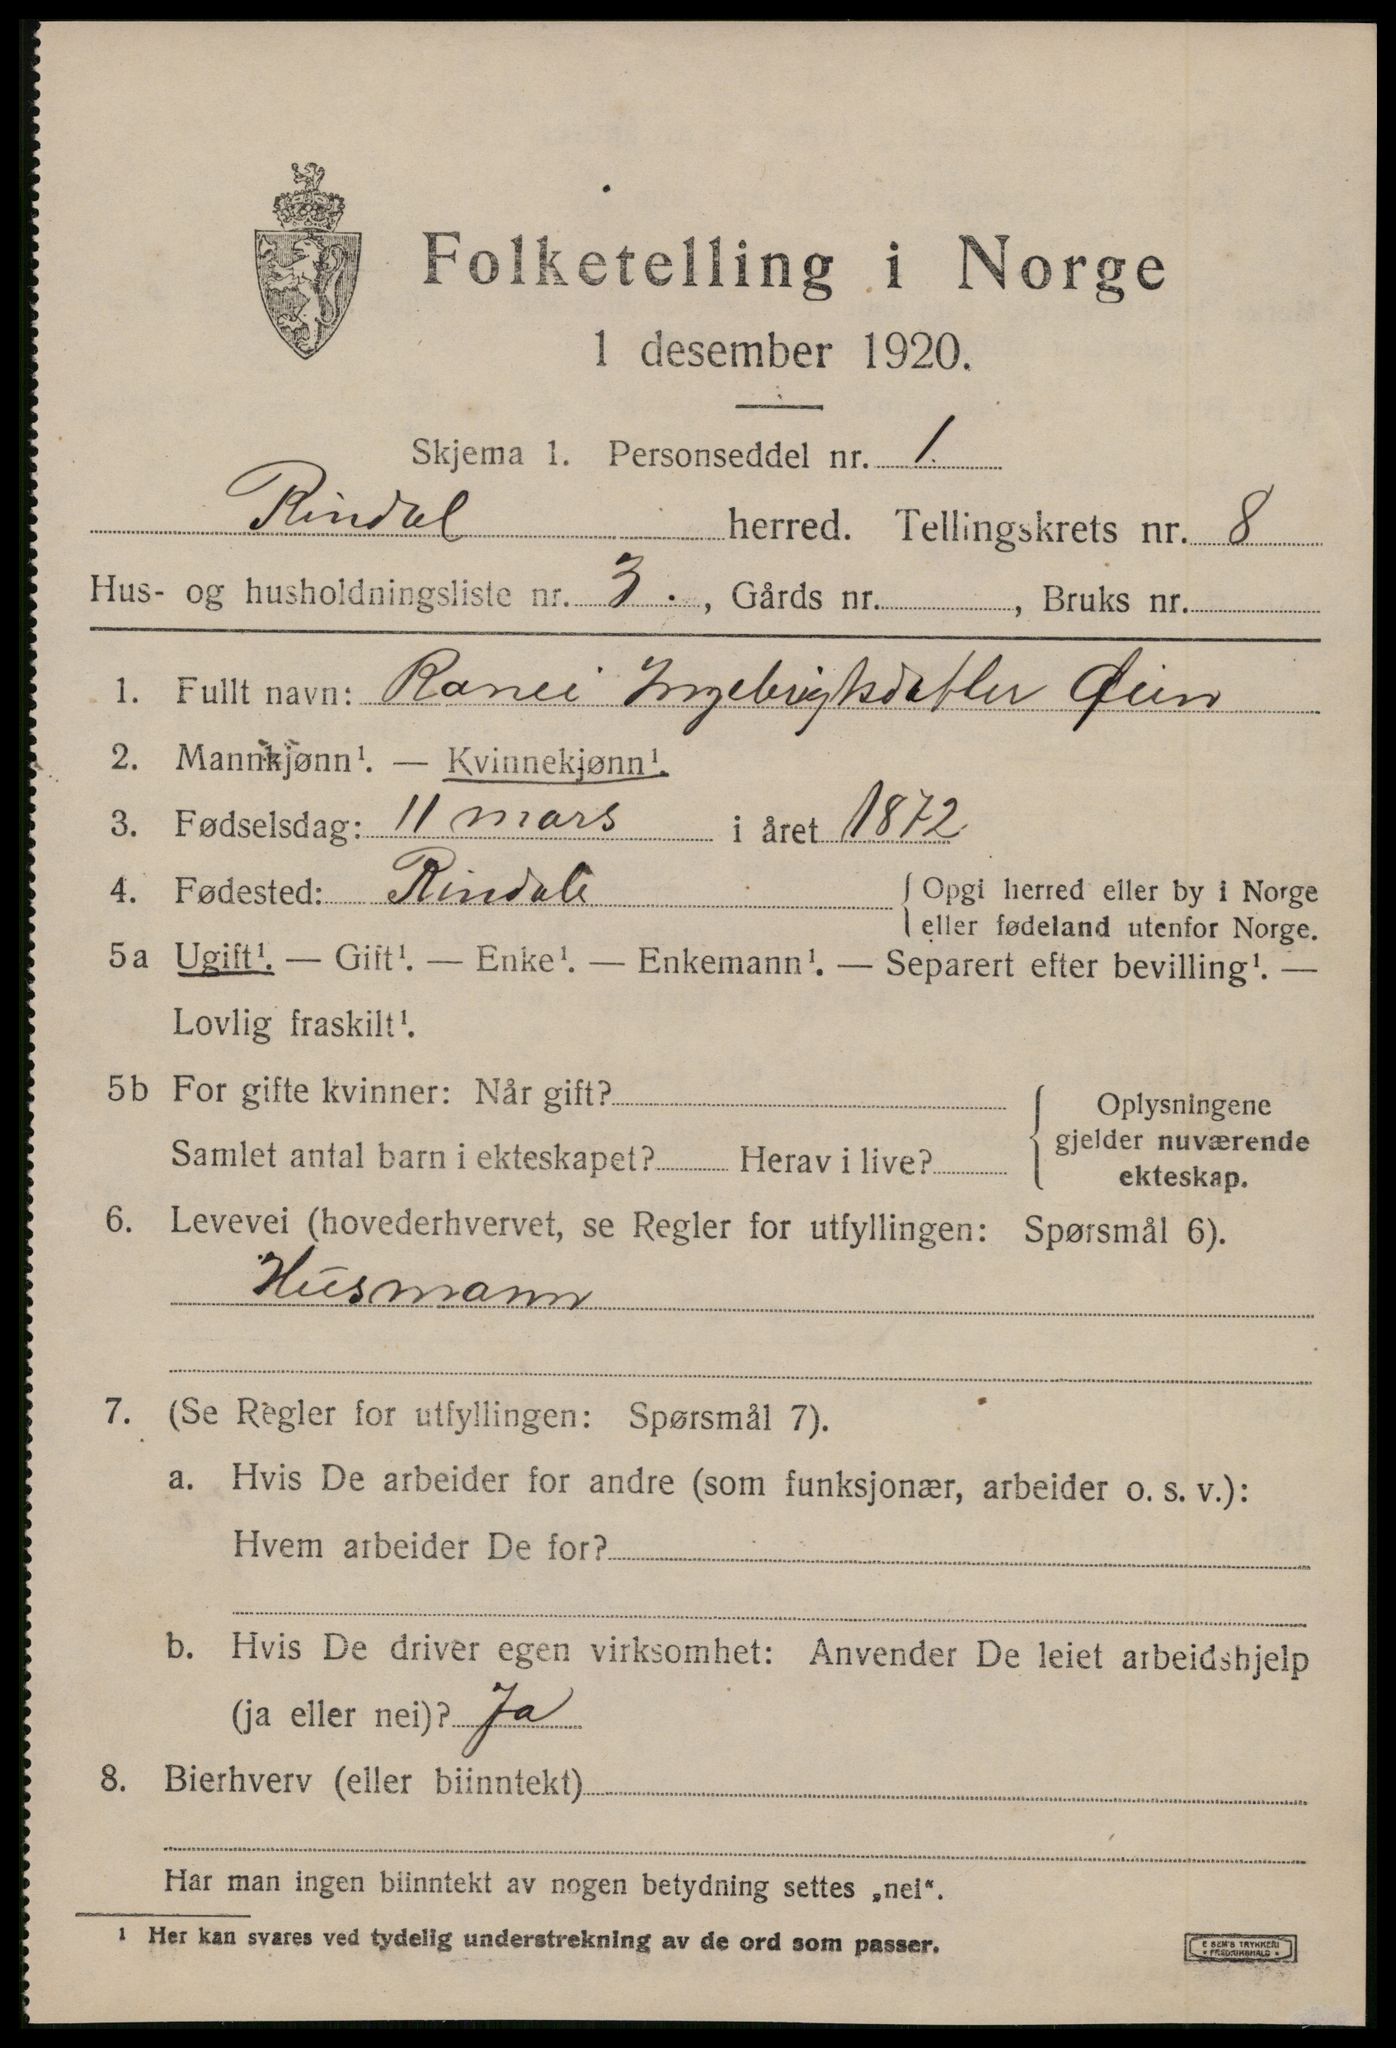 Folketelling i Norge
1 desember 1920.
Skjema 1. Personseddel nr. 1
Rindal herred. Tellingskrets nr. 8
Hus- og husholdningsliste nr. 3., Gårds nr. , Bruks nr.
1. Fullt navn: Ranei Ingebrigtsdatter Øien
2. Mannkjønn¹. — Kvinnekjønn¹.
3. Fødselsdag: 11 mars i året 1872
4. Fødested: Rindale { Opgi herred eller by i Norge
eller fødeland utenfor Norge.
5a Ugift¹. — Gift¹. — Enke¹. — Enkemann¹. — Separert efter bevilling¹. —
Lovlig fraskilt¹.
5b For gifte kvinner: Når gift?
Samlet antal barn i ekteskapet? Herav i live?
Oplysningene
gjelder nuværende
ekteskap.
6. Levevei (hovederhvervet, se Regler for utfyllingen: Spørsmål 6).
Husmann
7. (Se Regler for utfyllingen: Spørsmål 7).
a. Hvis De arbeider for andre (som funksjonær, arbeider o. s. v.):
Hvem arbeider De for?
b. Hvis De driver egen virksomhet: Anvender De leiet arbeidshjelp
(ja eller nei)? Ja
8. Bierhverv (eller biinntekt)
Har man ingen biinntekt av nogen betydning settes „nei“.
¹ Her kan svares ved tydelig understrekning av de ord som passer.
E SEM'S TRYKKERI
• FREDRIKSHALD •